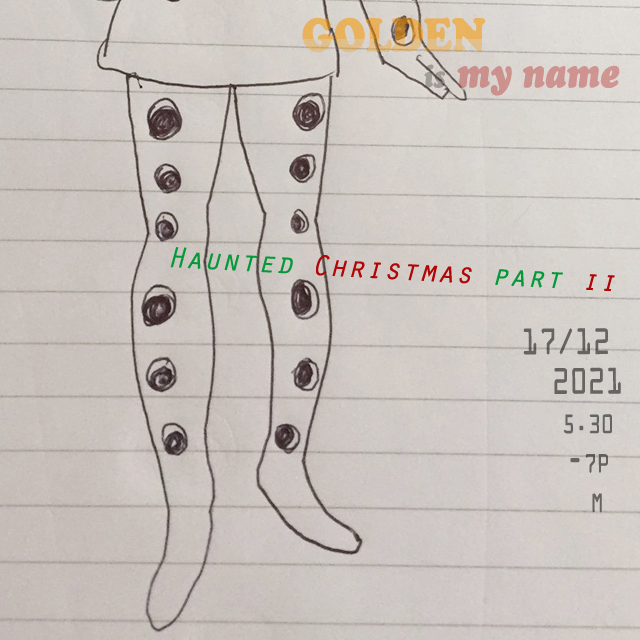 GOLDEN
is my name
Haunted Christmas part II
17/12
2021
5.30
-7P
M